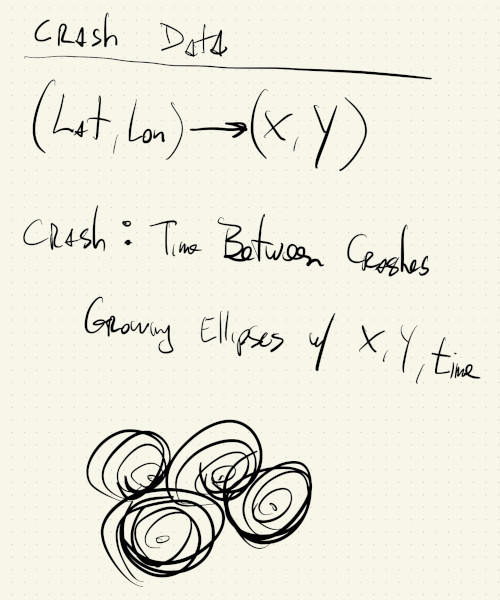 Crash Data
(Lat, Lon) → (X, Y)
Crash: Time Between Crashes
Growing Ellipses w/ X, Y, time